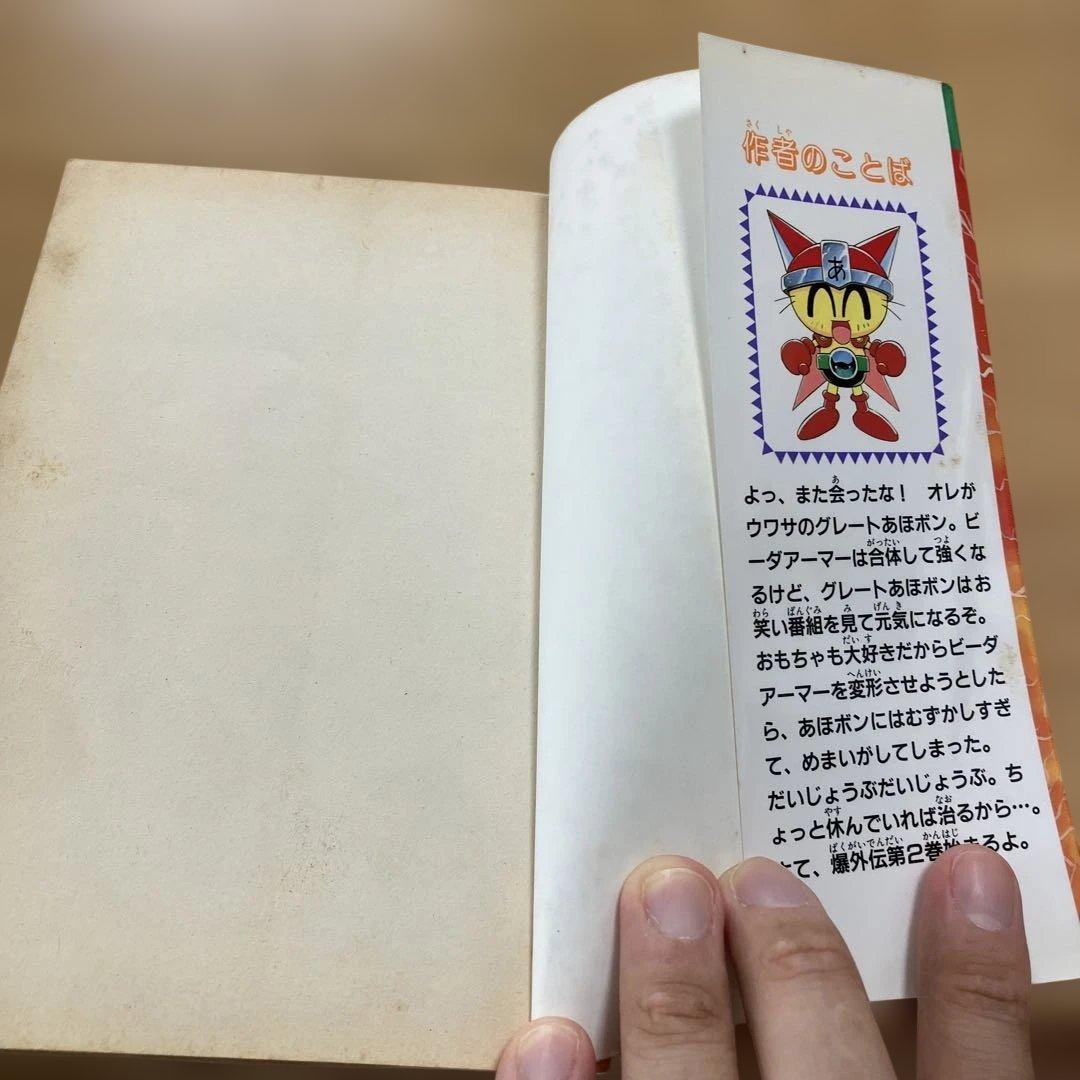 作者のことば
あ
よっ、また会ったな！ オレが
ウワサのグレートあほボン。ビ
ーダアーマーは合体して強くな
るけど、グレートあほボンはお
笑い番組を見て元気になるぞ。
おもちゃも大好きだからビーダ
アーマーを変形させようとした
ら、あほボンにはむずかしすぎ
て、めまいがしてしまった。
だいじょうぶだいじょうぶ。ち
ょっと休んでいれば治るから…。
て、爆外伝第2巻始まるよ。